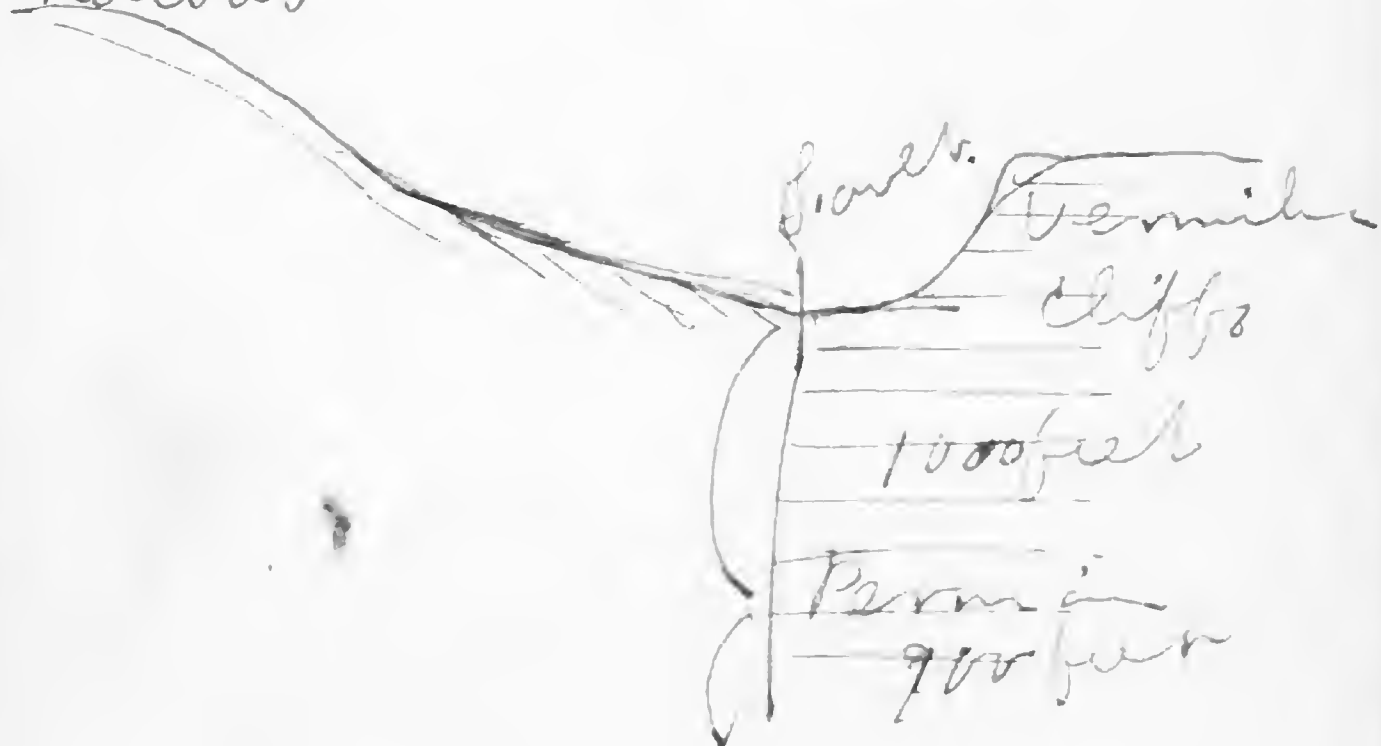 Vermilion
Cliffs
1000 feet
Permian
900 feet